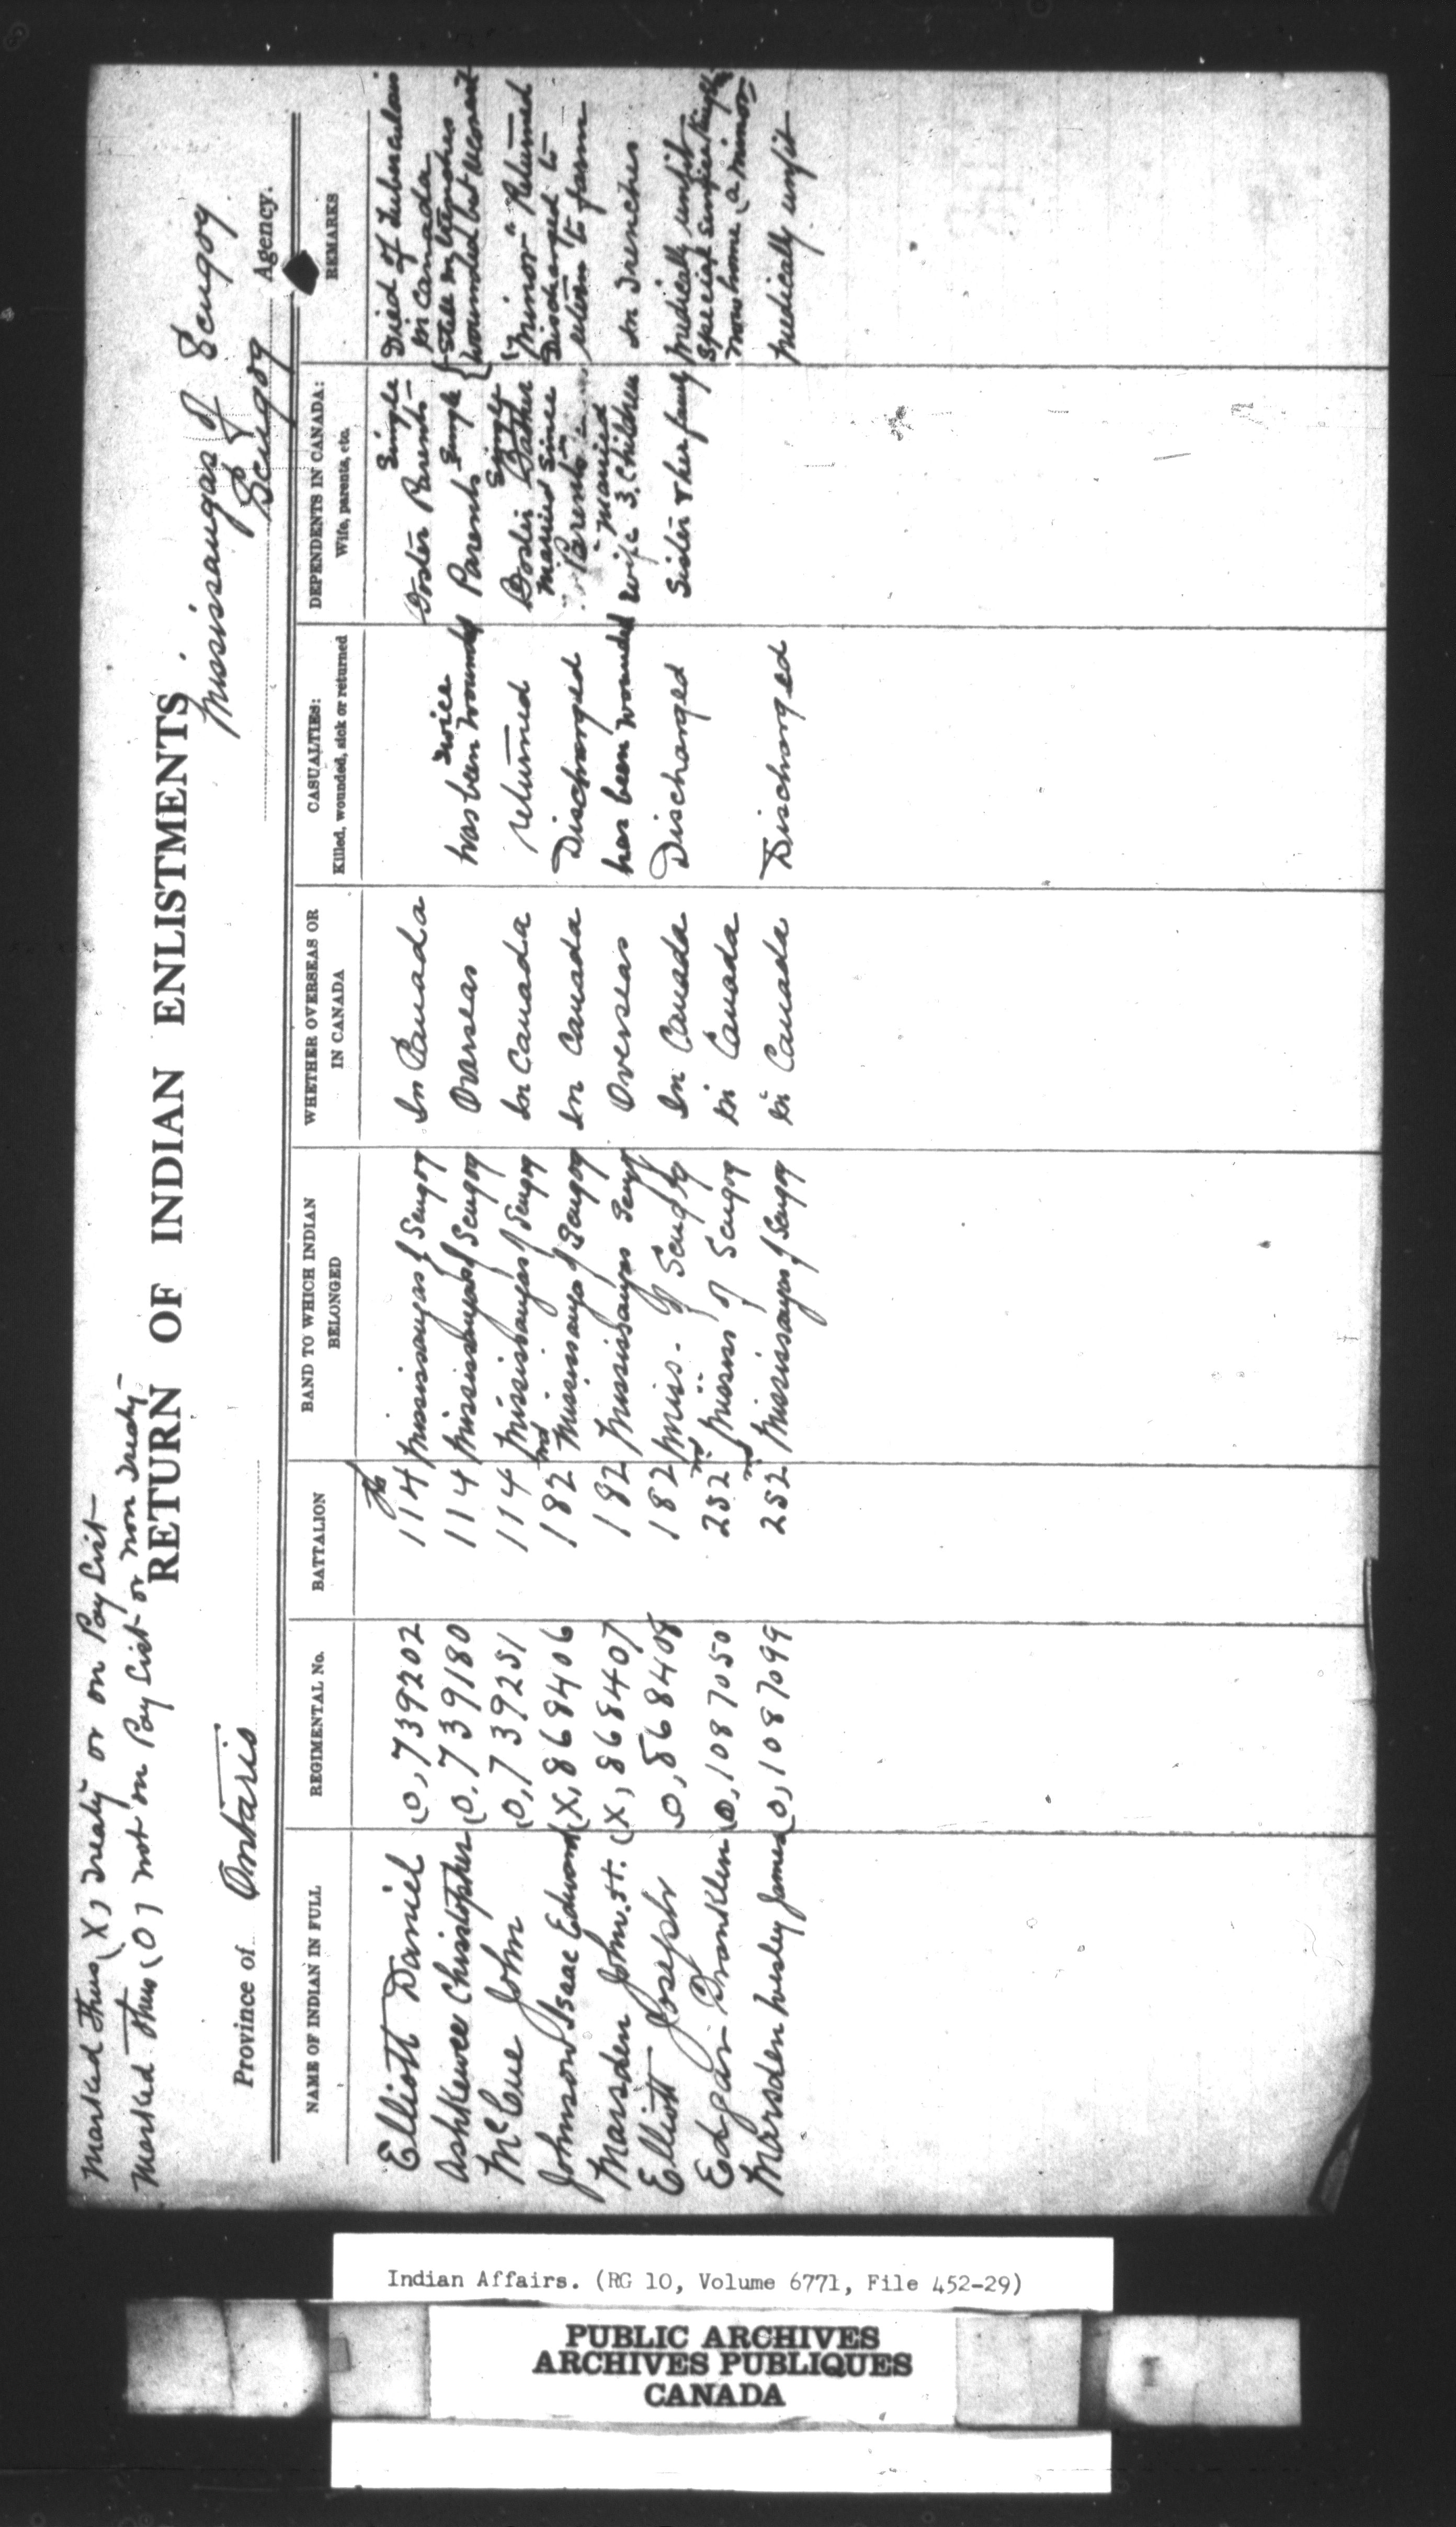 Marked Thus (X) Treaty or on Pay List
Marked Thus (O) not on Pay List or non Treaty
RETURN OF INDIAN ENLISTMENTS
Mississaugas of Scugog
Province of Ontario Scugog Agency.
NAME OF INDIAN IN FULL REGIMENTAL No. BATTALION BAND TO WHICH INDIAN BELONGED WHETHER OVERSEAS OR IN CANADA CASUALTIES: Killed, wounded, sick or returned DEPENDENTS IN CANADA: Wife, parents, etc. REMARKS
Elliott Daniel (O, 739202 114th Mississaugas of Scugog In Canada Single Foster Parents Died of tuberculosis in Canada
Ashkewee Christopher (O, 739180 114 Mississaugas of Scugog Overseas has been twice wounded Parents Single Still in trenches wounded but
McCue John (O, 739251 114 Mississaugas of Scugog In Canada returned Foster Father Single "Minor" Returned
Johnson Isaac Edward (X, 868406 182nd Mississaugas of Scugog In Canada Discharged married since Parents Discharged to return to farm
Marsden John. (X, 868407 182 Mississaugas Scugog Overseas has been wounded married wife 3. Children In Trenches
Elliott Joseph O, 868408 182 Miss. of Scugog In Canada Discharged Sister & her family Medically unfit
Edgar Franklin (O, 1087050 252nd Missis of Scugog In Canada Special now home (a minor
Marsden Wesley James (O, 1087099 252nd Mississaugas of Scugog In Canada Discharged Medically unfit
Indian Affairs. (RG 10, Volume 6771, File 452-29)
PUBLIC ARCHIVES
ARCHIVES PUBLIQUES
CANADA